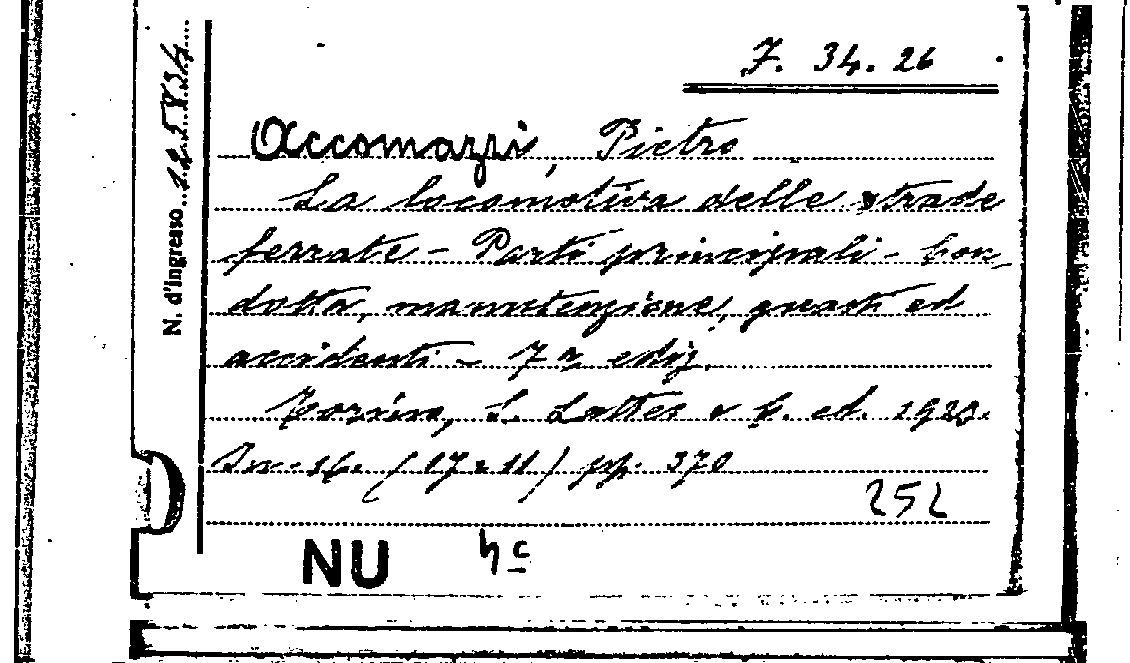 7. 34. 26
N. d'Ingresso 125834
Accomazzi, Pietro
La locomotiva delle strade
ferrate - Parti principali - Con-
dotta, manutenzione, guasti ed
accidenti - 7a ediz.
Torino, S. Lattes e C. ed. 1920.
In-16. (17x11) pp. 370
252
NU